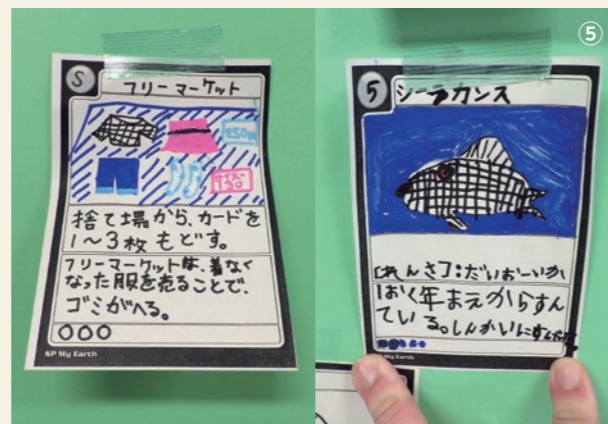 S
フリーマーケット
250円
サイズ
130
捨て場から、カードを
1〜3枚もどす。
フリーマーケットは、着なく
なった服を売ることで、
ゴミがへる。
SP My Earth
⑤
5
シーラカンス
[れんさ]:だいおーいか
おく年まえからすん
ている。しんかいに
SP My Earth